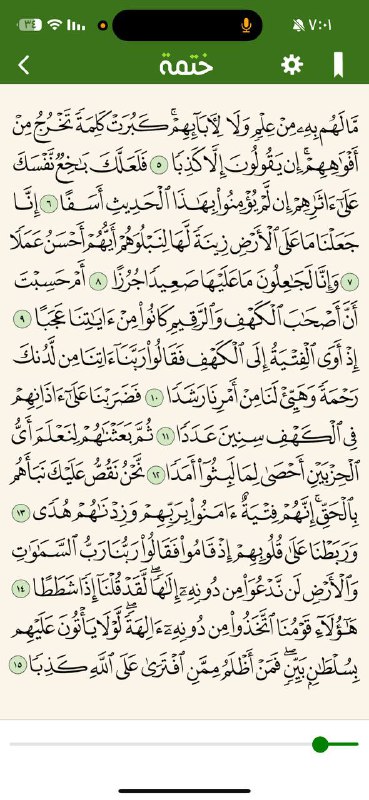 ٧:٠١
٣٤
ختمة
مَّا لَهُم بِهِۦ مِنْ عِلْمٍ وَلَا لِأٓبَآئِهِمْ ۚ كَبُرَتْ كَلِمَةً تَخْرُجُ مِنْ
أَفْوَٰهِهِمْ ۚ إِن يَقُولُونَ إِلَّا كَذِبًا ٥ فَلَعَلَّكَ بَٰخِعٌ نَّفْسَكَ
عَلَىٰٓ ءَاثَٰرِهِمْ إِن لَّمْ يُؤْمِنُوا۟ بِهَٰذَا ٱلْحَدِيثِ أَسَفًا ٦ إِنَّا
جَعَلْنَا مَا عَلَى ٱلْأَرْضِ زِينَةً لَّهَا لِنَبْلُوَهُمْ أَيُّهُمْ أَحْسَنُ عَمَلًا
٧ وَإِنَّا لَجَٰعِلُونَ مَا عَلَيْهَا صَعِيدًا جُرُزًا ٨ أَمْ حَسِبْتَ
أَنَّ أَصْحَٰبَ ٱلْكَهْفِ وَٱلرَّقِيمِ كَانُوا۟ مِنْ ءَايَٰتِنَا عَجَبًا ٩
إِذْ أَوَى ٱلْفِتْيَةُ إِلَى ٱلْكَهْفِ فَقَالُوا۟ رَبَّنَآ ءَاتِنَا مِن لَّدُنكَ
رَحْمَةً وَهَيِّئْ لَنَا مِنْ أَمْرِنَا رَشَدًا ١٠ فَضَرَبْنَا عَلَىٰٓ ءَاذَانِهِمْ
فِى ٱلْكَهْفِ سِنِينَ عَدَدًا ١١ ثُمَّ بَعَثْنَٰهُمْ لِنَعْلَمَ أَىُّ
ٱلْحِزْبَيْنِ أَحْصَىٰ لِمَا لَبِثُوٓا۟ أَمَدًا ١٢ نَّحْنُ نَقُصُّ عَلَيْكَ نَبَأَهُم
بِٱلْحَقِّ ۚ إِنَّهُمْ فِتْيَةٌ ءَامَنُوا۟ بِرَبِّهِمْ وَزِدْنَٰهُمْ هُدًى ١٣
وَرَبَطْنَا عَلَىٰ قُلُوبِهِمْ إِذْ قَامُوا۟ فَقَالُوا۟ رَبُّنَا رَبُّ ٱلسَّمَٰوَٰتِ
وَٱلْأَرْضِ لَن نَّدْعُوَا۟ مِن دُونِهِۦٓ إِلَٰهًا ۖ لَّقَدْ قُلْنَآ إِذًا شَطَطًا ١٤
هَٰٓؤُلَآءِ قَوْمُنَا ٱتَّخَذُوا۟ مِن دُونِهِۦٓ ءَالِهَةً ۖ لَّوْلَا يَأْتُونَ عَلَيْهِم
بِسُلْطَٰنٍۭ بَيِّنٍ ۖ فَمَنْ أَظْلَمُ مِمَّنِ ٱفْتَرَىٰ عَلَى ٱللَّهِ كَذِبًا ١٥